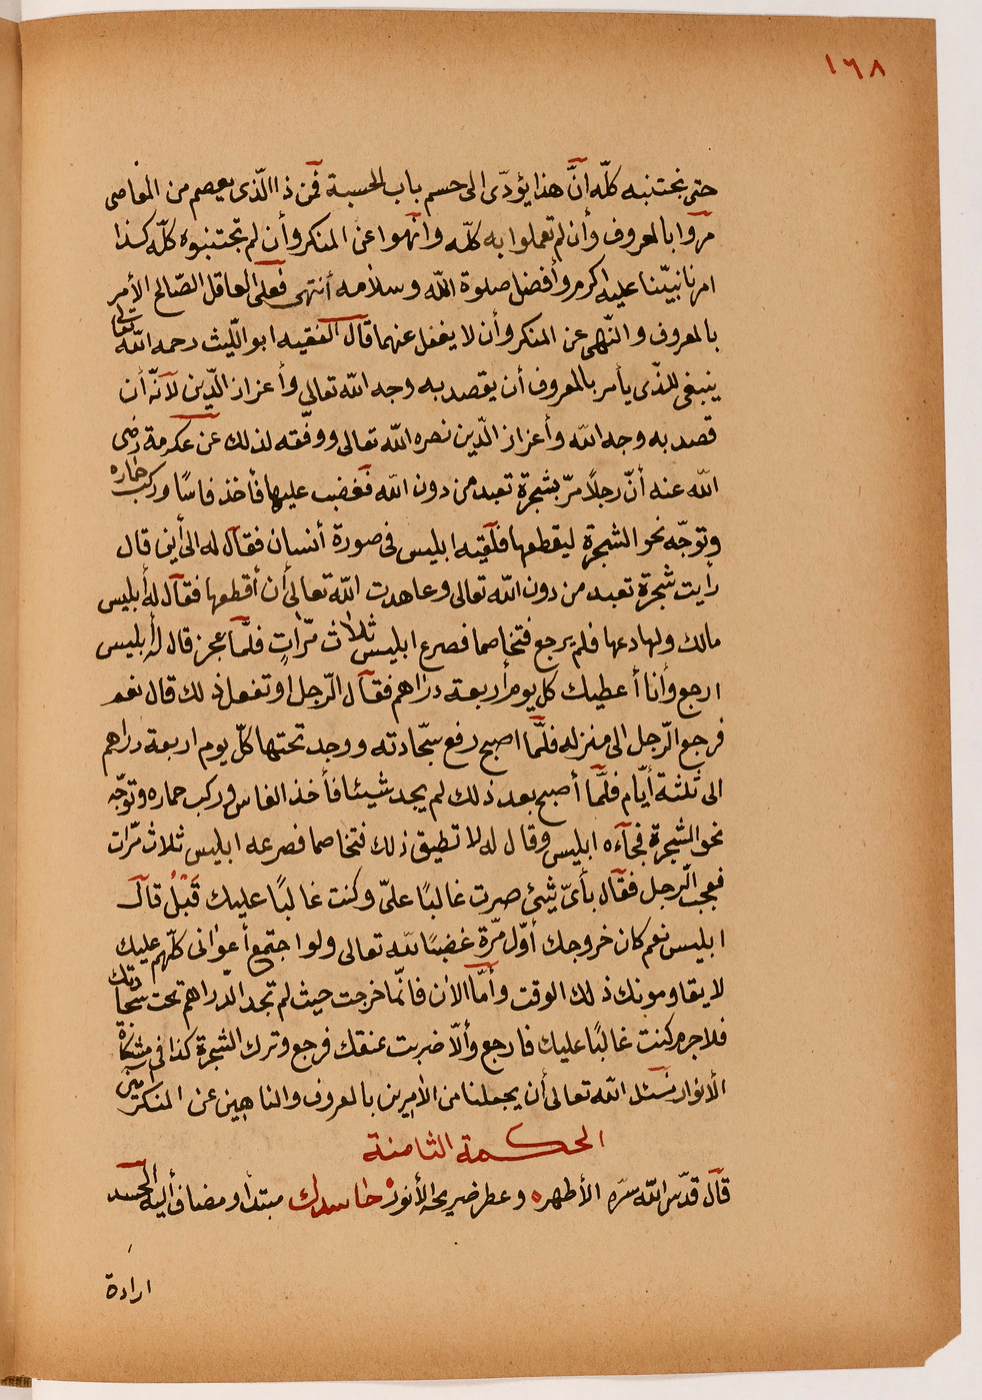 ١٦٨
حتى نجتنبه كلّه انّ هذا يؤدّى الى حسم باب الحسبة فمن ذا الّذى يعصم من المعاصى
مروا بالمعروف وأن لم تعملوا به كلّه وانهوا عن المنكر وأن لم تجتنبوه كلّه كذا
امرنا نبيّنا عليه اكرم وأفضل صلوة اللّه وسلامه أنتهى فعلى العاقل الصّالح الأمر
بالمعروف والنّهى عن المنكر وأن لا يغفل عنهما قال الفقيه ابو اللّيث رحمه اللّه تعالى
ينبغى للذّى يأمر بالمعروف أن يقصد به وجه اللّه تعالى وأعزاز الدّين لأنّه أن
قصد به وجه اللّه وأعزاز الدّين نصره اللّه تعالى ووفّقه لذلك عن عكرمة رضى
اللّه عنه أنّ رجلاً مرّ بشجرة تعبد من دون اللّه فغضب عليها فأخذ فاسًا وركب حماره
وتوجّه نحو الشجرة ليقطعها فلقيه ابليس فى صورة أنسان فقال له الى أين قال
رأيت شجرة تعبد من دون اللّه تعالى وعاهدت اللّه تعالى أن أقطعها فقال له أبليس
مالك ولها دعها فلم يرجع فتخاصما فصرع ابليس ثلاث مرّاتٍ فلمّا عجز قال له أبليس
ارجع وأنا أعطيك كل يوم أربعة دراهم فقال الرّجل او تفعل ذلك قال نعم
فرجع الرّجل الى منزله فلمّا اصبح رفع سجّادته ووجد تحتها كلّ يوم اربعة دراهم
الى ثلثة أيّام فلمّا أصبح بعد ذلك لم يجد شيئا فأخذ الفاس وركب حماره وتوجّه
نحو الشجرة فجآءه ابليس وقال له لا تطيق ذلك فتخاصما فصرعه ابليس ثلاث مرّات
فعجب الرّجل فقال بأىّ شئ صرت غالبًا علىّ وكنت غالبًا عليك قَبْلُ قال
ابليس نعم كان خروجك أوّل مرّة غضبًا للّه تعالى ولو اجتمع أعوانى كلّهم عليك
لا يقاومونك ذلك الوقت وأمّا الأن فانّما خرجت حيث لم تجد الدّراهم تحت سجّادتك
فلا جرم كنت غالبًا عليك فارجع وألّا ضربت عنقك فرجع وترك الشجرة كذا فى مشكاة
الأنوار نسئل اللّه تعالى أن يجعلنا من الأمرين بالمعروف والناهين عن المنكر آمين
الحكمة الثامنة
قال قدّس اللّه سرّه الأطهره وعطر ضريحه الأنوره حاسدك مبتدأ ومضاف أليه الحسد
ارادة